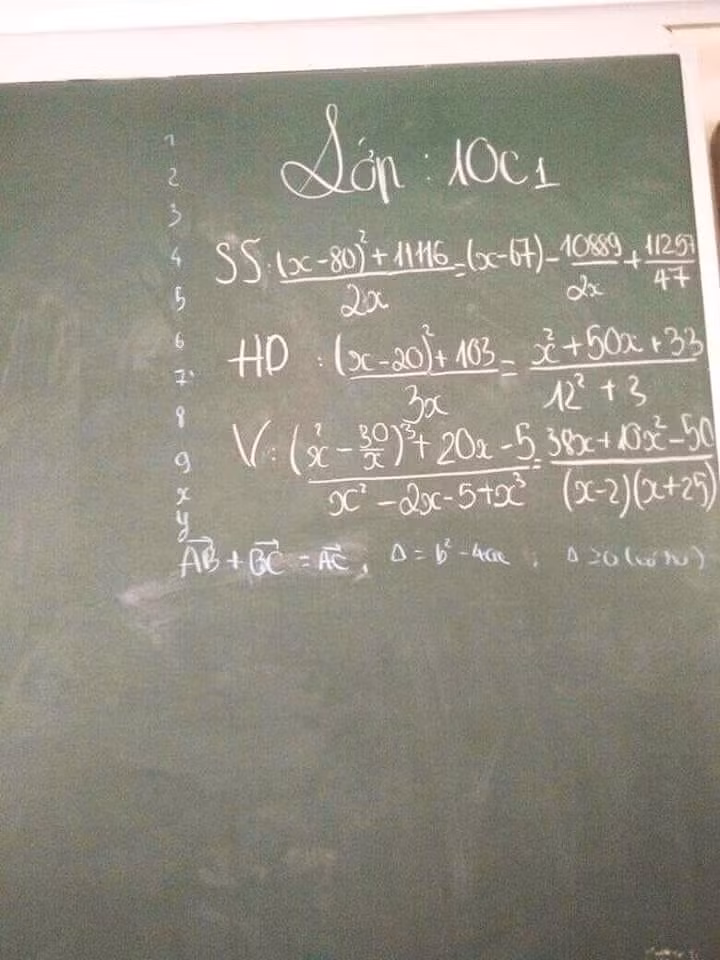 1
2
3
4
5
6
7
8
9
x
y
Lớp : 10C1
SS: ((x-80)² + 11116)/2x = (x-67) - 10889/2x + 11257/47
HD : ((x-20)² + 103)/3x = (x² + 50x + 33)/(12² + 3)
V: ((x² - 30/x)³ + 20x - 5)/(x² - 2x - 5 + x³) = (38x + 10x² - 50)/((x-2)(x+25))
AB→ + BC→ = AC→ , Δ = b² - 4ac ; Δ ≥ 0